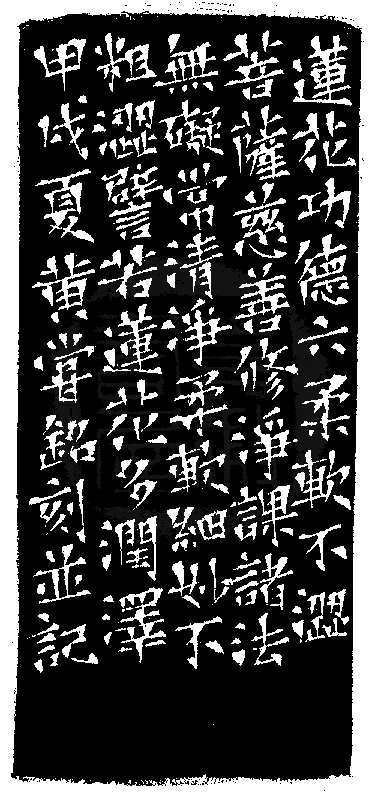 蓮花功德六柔軟不澀
菩薩慈善修淨課諸法
無礙常清淨柔軟細妙不
粗澀譬若蓮花多潤澤
甲戌夏黃嘗銘刻並記